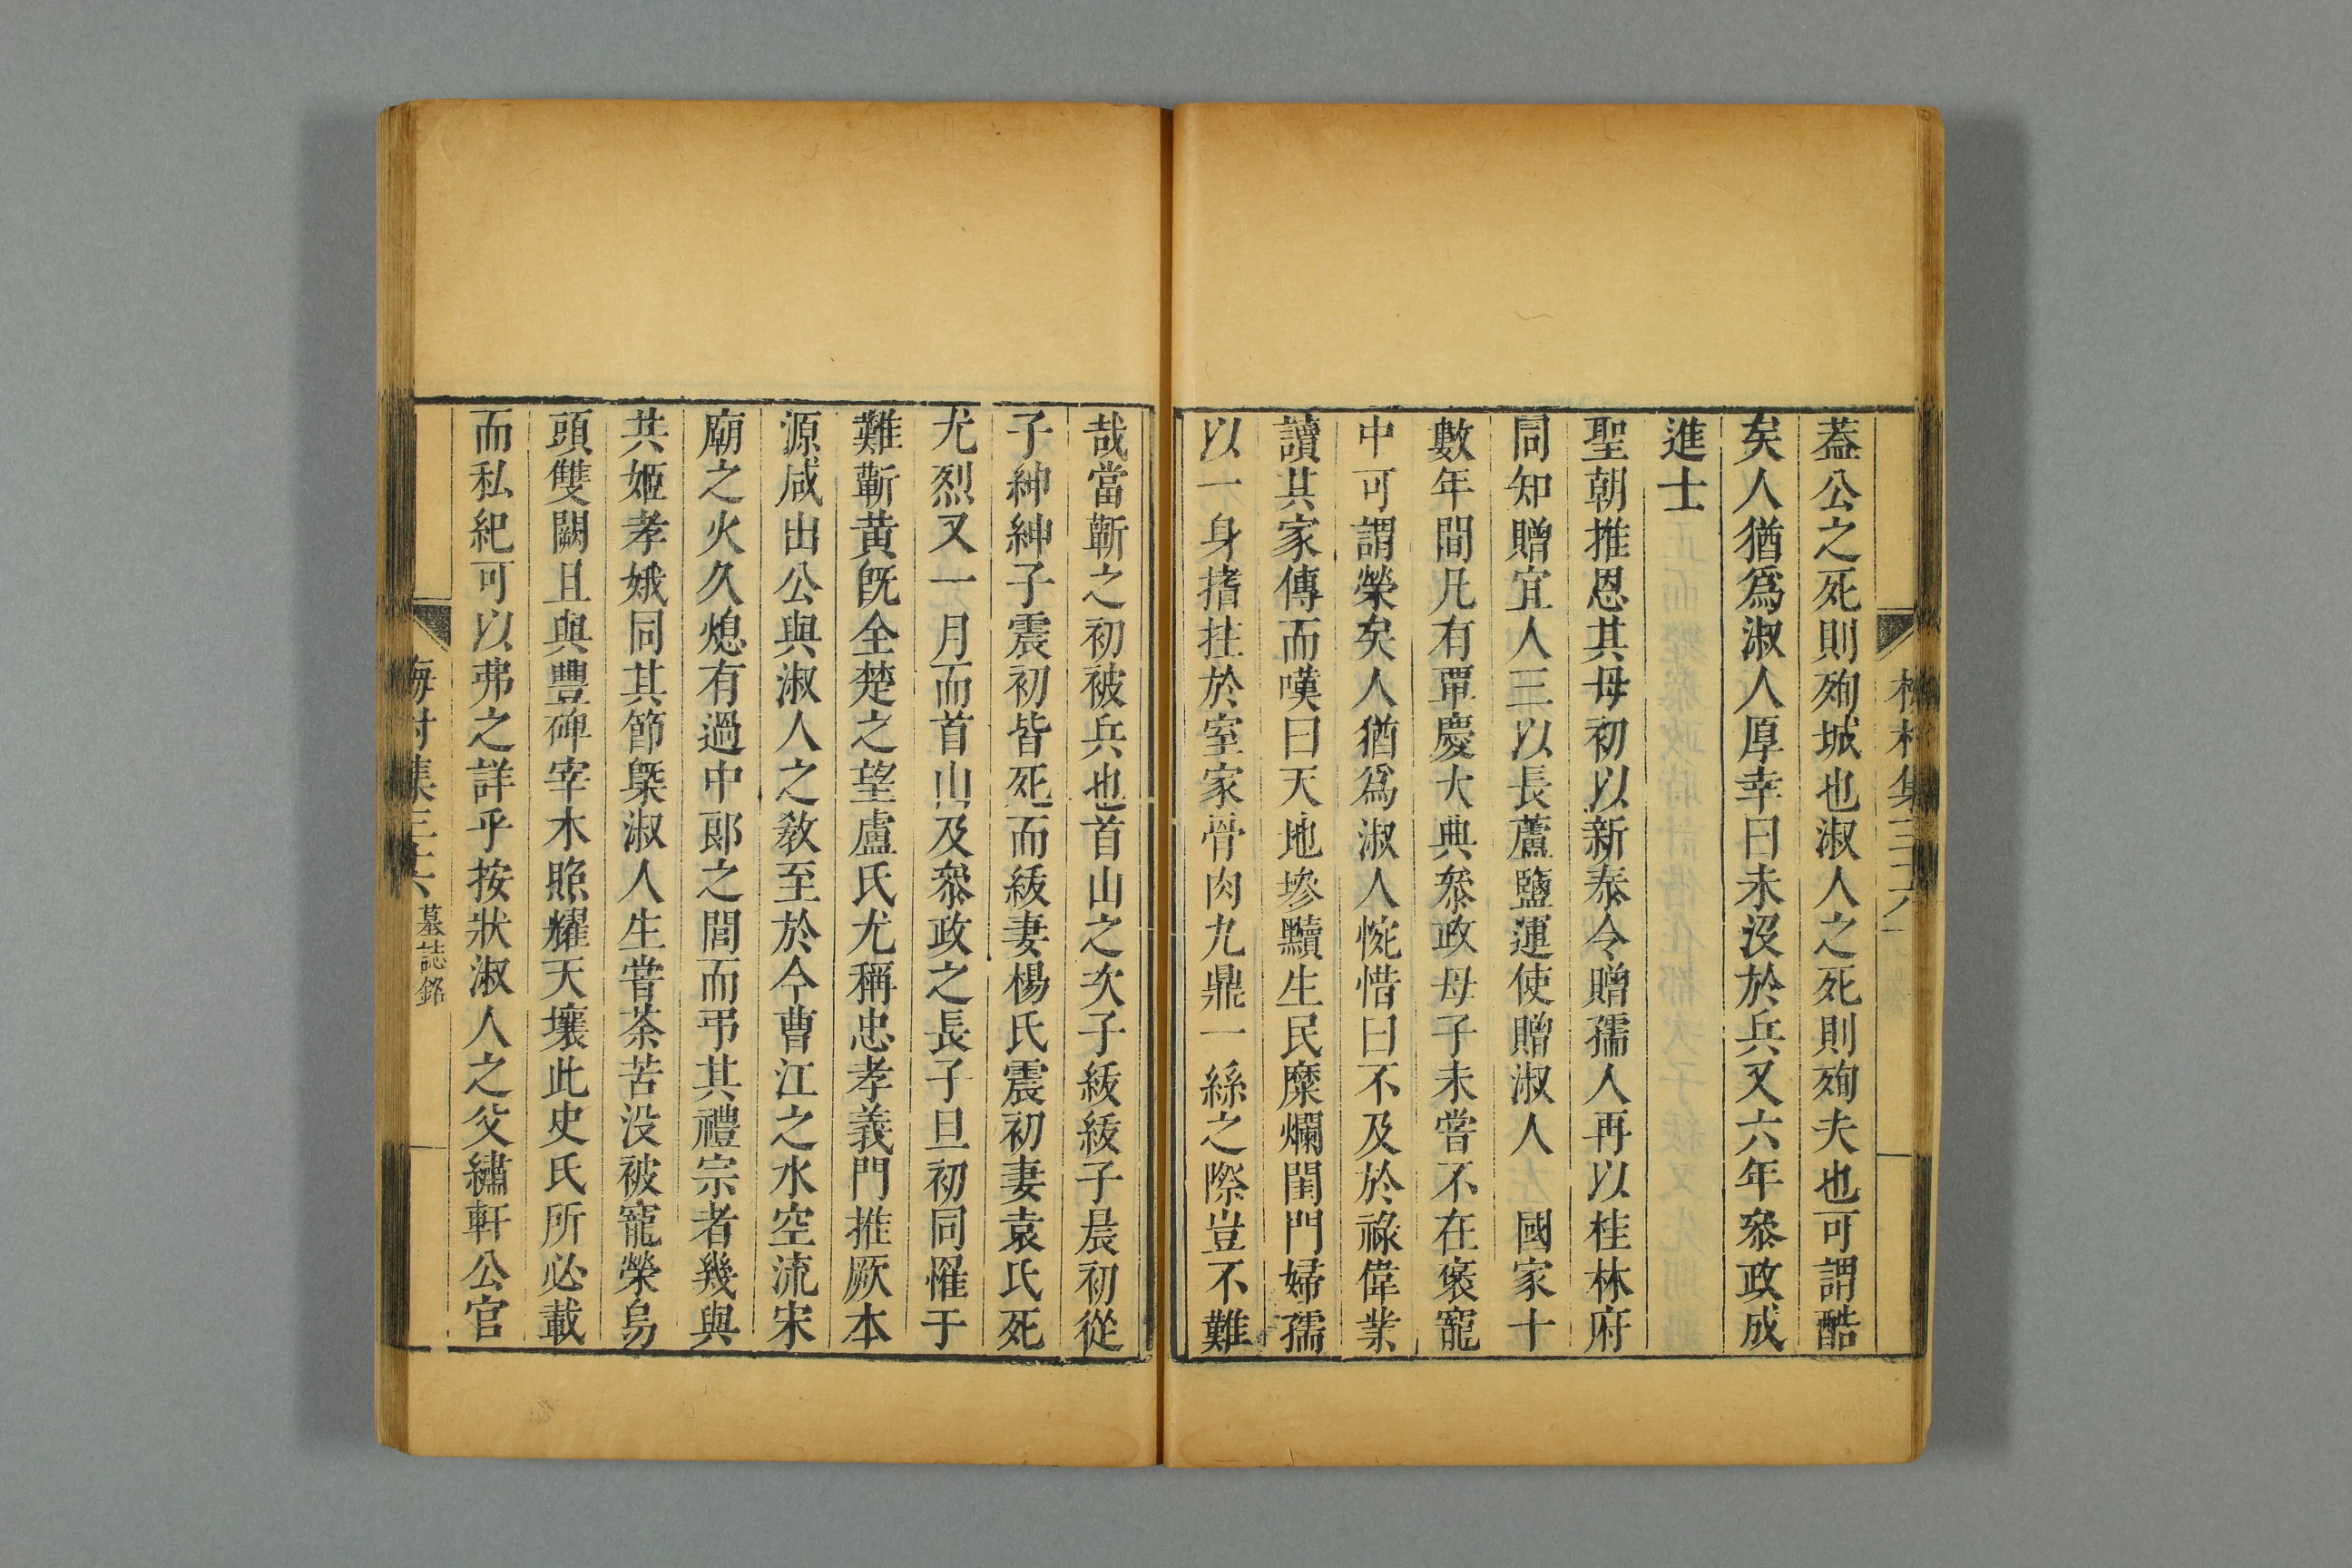 蓋公之死則殉城也淑人之死則殉夫也可謂酷
矣人猶爲淑人厚幸曰未沒於兵又六年叅政成
進士
聖朝推恩其母初以新泰令贈孺人再以桂林府
同知贈宜人三以長蘆鹽運使贈淑人 國家十
數年間凡有覃慶大典叅政母子未嘗不在褒寵
中可謂榮矣人猶爲淑人惋惜曰不及於祿偉業
讀其家傳而嘆曰天地墋黷生民糜爛閨門婦孺
以一身搘拄於室家骨肉九鼎一絲之際豈不難
哉當蘄之初被兵也首山之次子綍綍子晨初從
子紳紳子震初皆死而綍妻楊氏震初妻袁氏死
尤烈又一月而首山及叅政之長子旦初同罹于
難蘄黃旣全楚之望盧氏尤稱忠孝義門推厥本
源咸出公與淑人之教至於今曹江之水空流宋
廟之火久熄有過中郎之閭而弔其禮宗者幾與
共姬孝娥同其節槩淑人生嘗荼苦没被寵榮烏
頭雙闕且與豐碑宰木照耀天壤此史氏所必載
而私紀可以弗之詳乎按狀淑人之父繡軒公官
梅村集三十六 墓誌銘